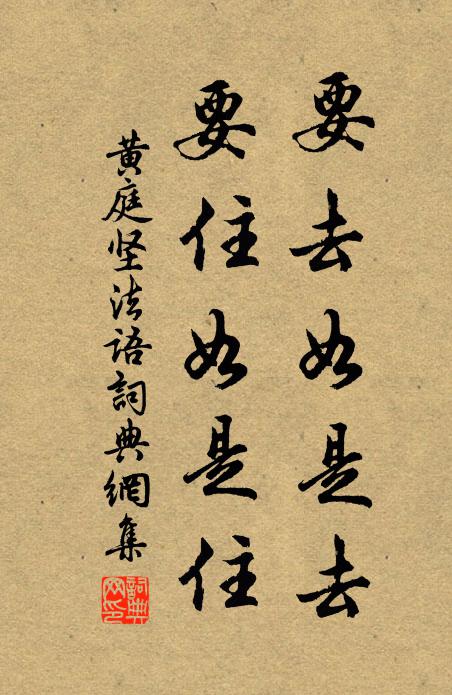 要去如是去
要住如是住
黄庭坚法语詞典網集
詞典网印